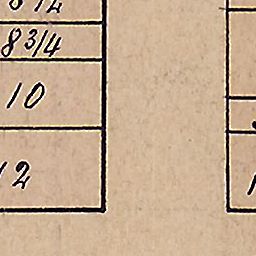 8 1/2
8 3/4
10
12